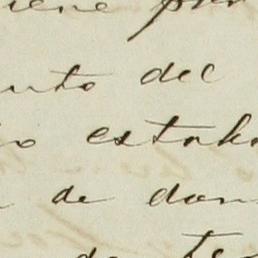 iene por
nto del
o estab
a de don
de te